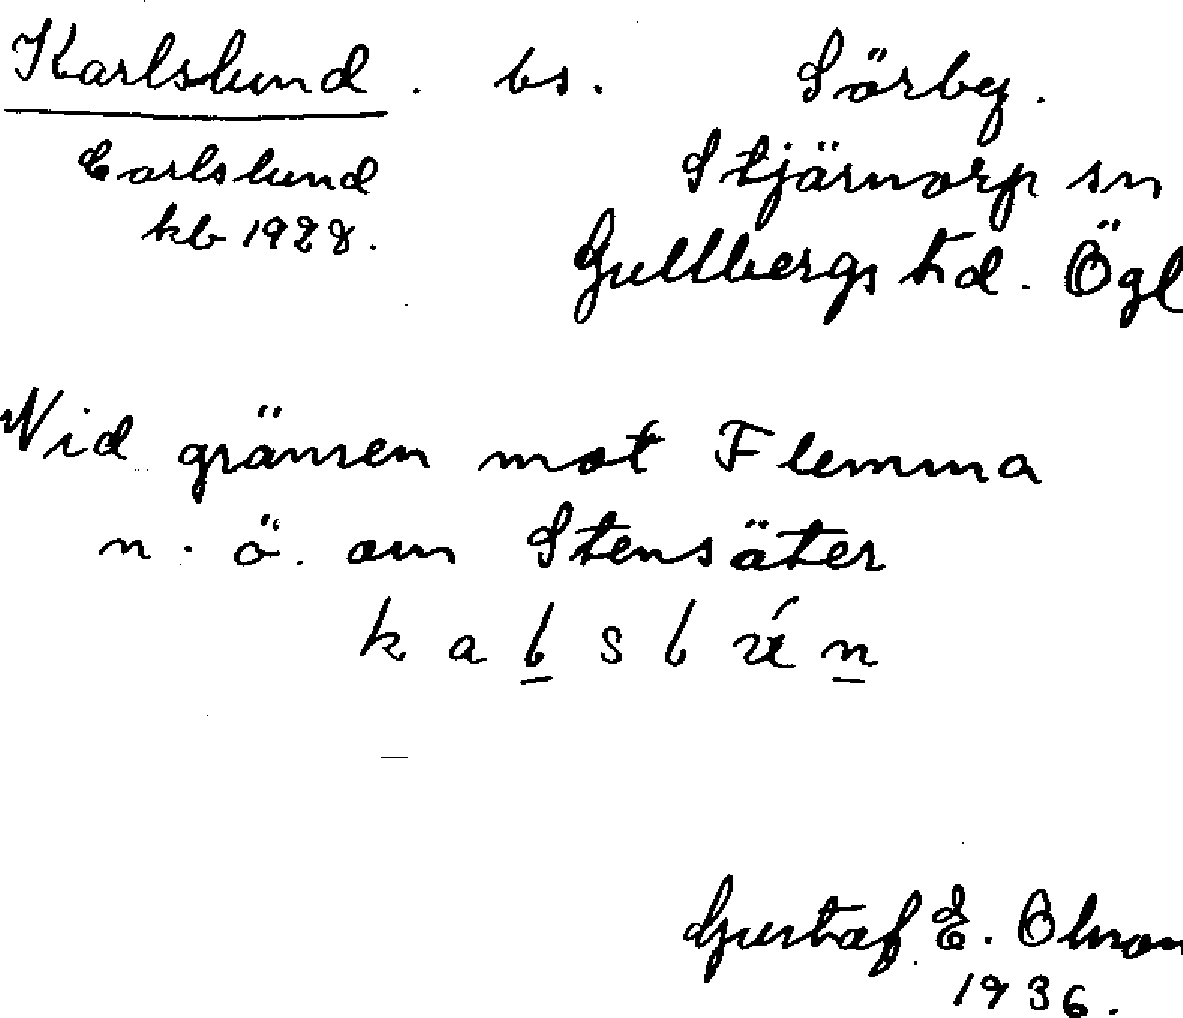 Karlslund. bs. Sörby.
Carlslund Stjärnorp sn
kb 1928. Gullbergs hd. Ögl
Vid gränsen mot Flemma
n. ö. om Stensäter
k a l s l ú n
Gustaf E. Olson
1936.